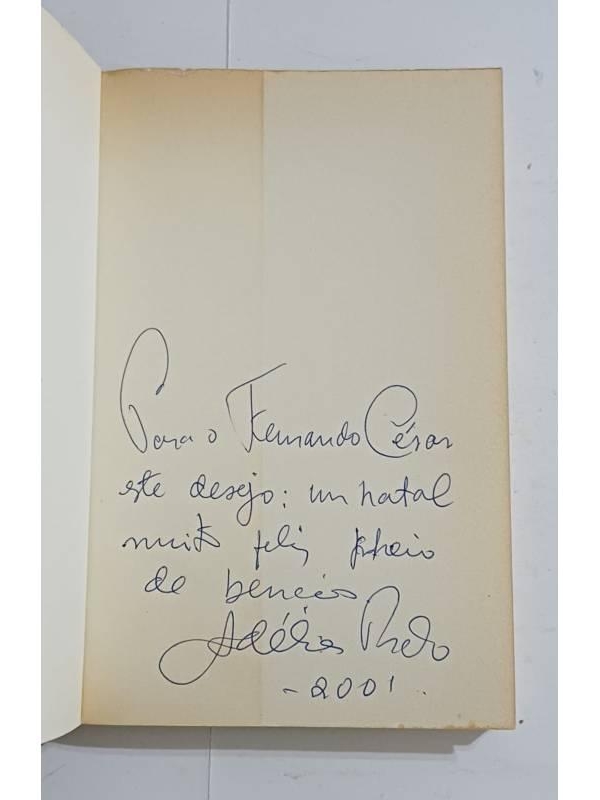 Para o Fernando César
este desejo: um natal
muito feliz cheio
de bençãos
Adélia Prado
- 2001.